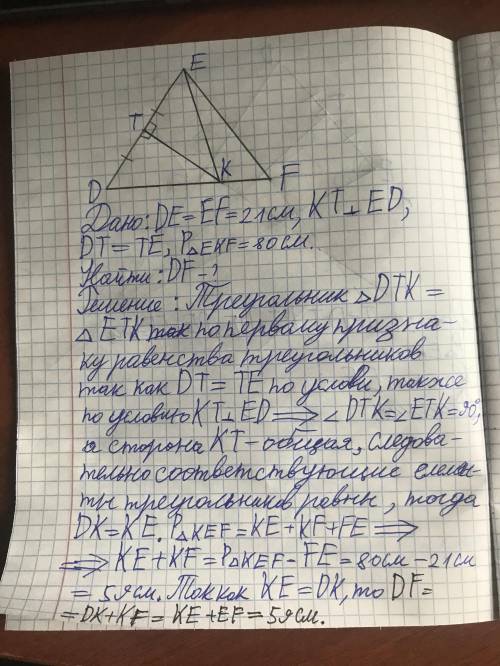 E
T
D
K
F
Дано: DE = EF = 21 см, KT ⊥ ED,
DT = TE, P△EKF = 80 см.
Найти: DF - ?
Решение: Треугольник △DTK =
△ETK так по первому призна-
ку равенства треугольников
так как DT = TE по услови, также
по условию KT ⊥ ED ⟹ ∠DTK = ∠ETK = 90°,
а сторона KT - общая, следова-
тельно соответствующие елемен-
ты треугольников равны, тогда
DK = KE. P△KEF = KE + KF + FE ⟹
⟹ KE + KF = P△KEF - FE = 80 см - 21 см
= 59 см. Так как KE = DK, то DF =
= DK + KF = KE + EF = 59 см.